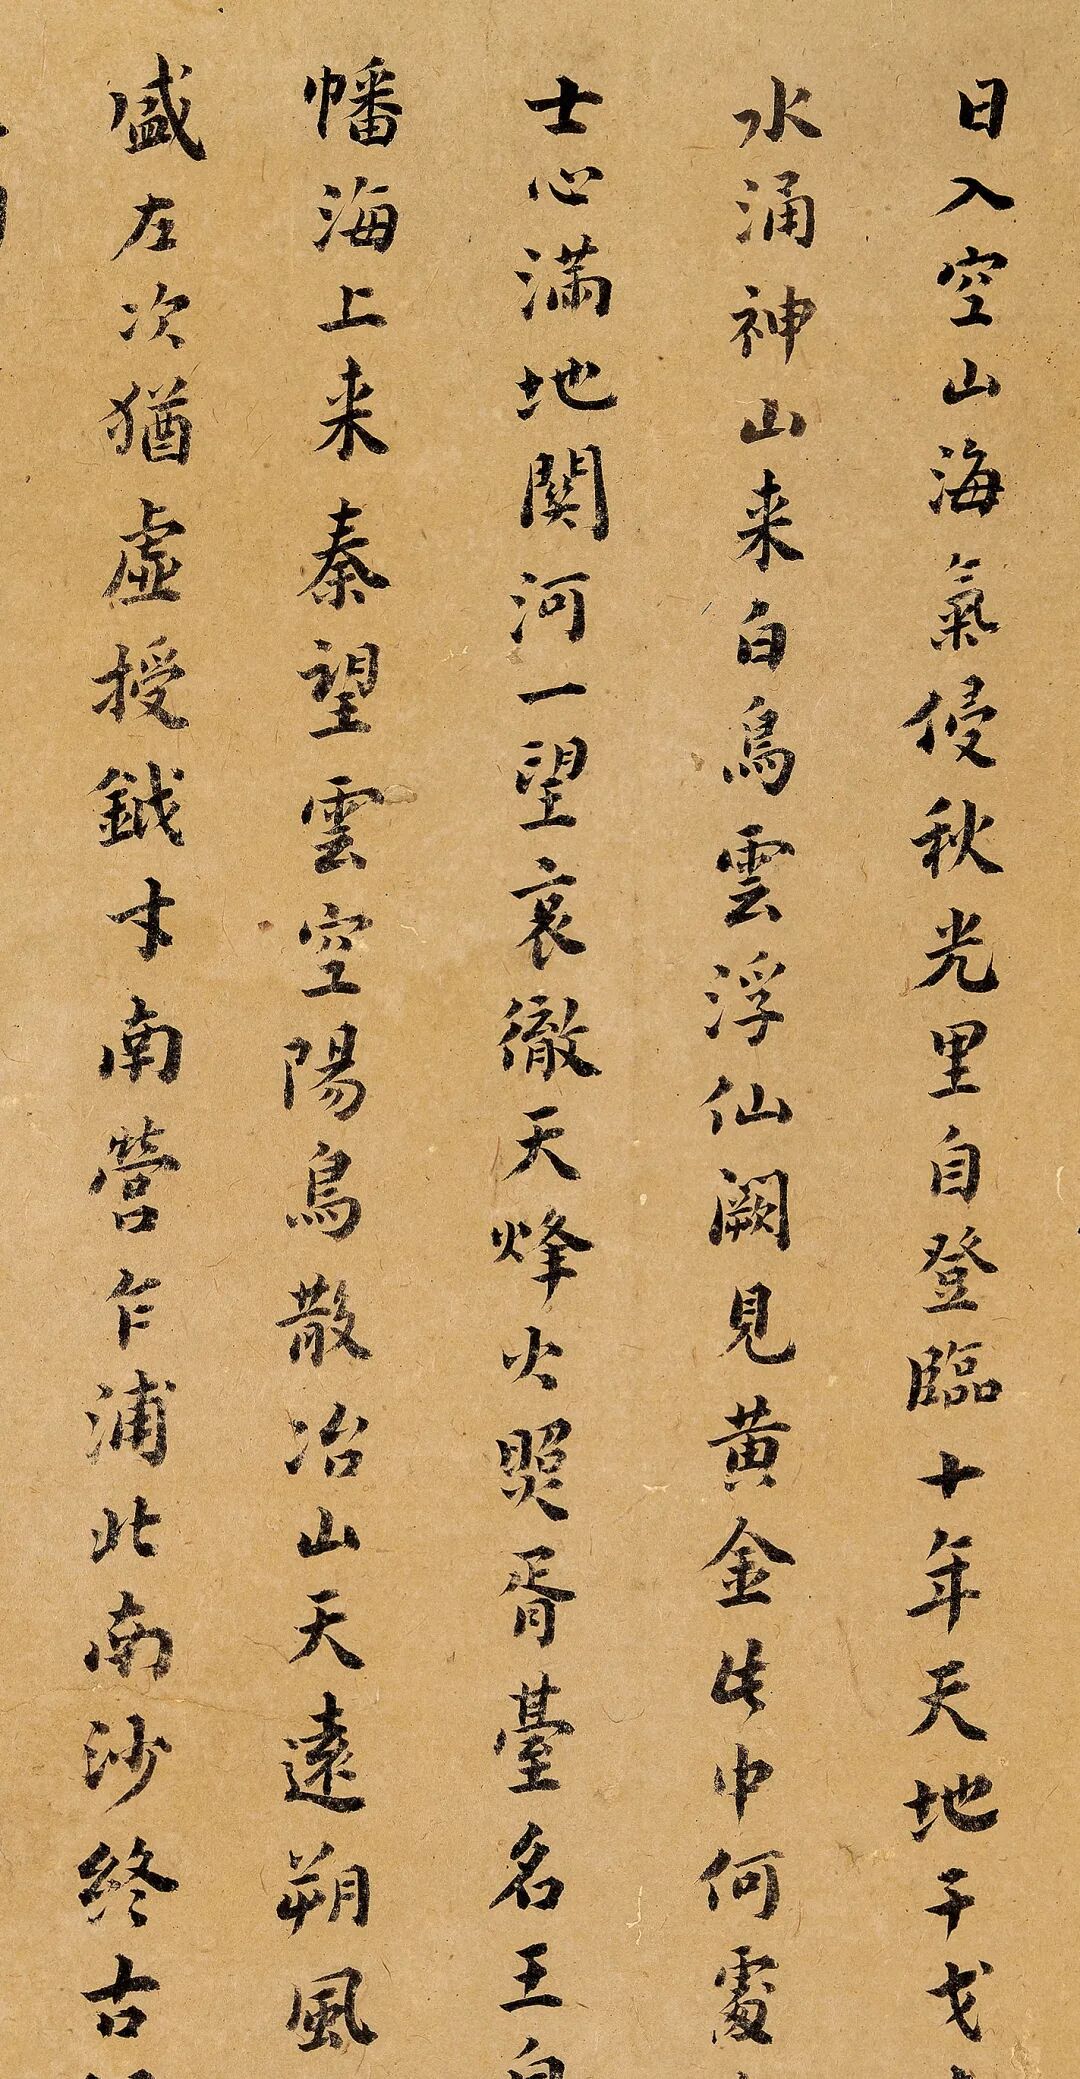 日入空山海氣侵秋光里自登臨十年天地干戈
水涌神山来白鳥雲浮仙闕見黄金此中何處
士心滿地関河一望哀徹天烽火照胥臺名王
幡海上来秦望雲空陽鳥散冶山天遠朔風
盛左次猶虛授鉞才南營乍浦北南沙終古